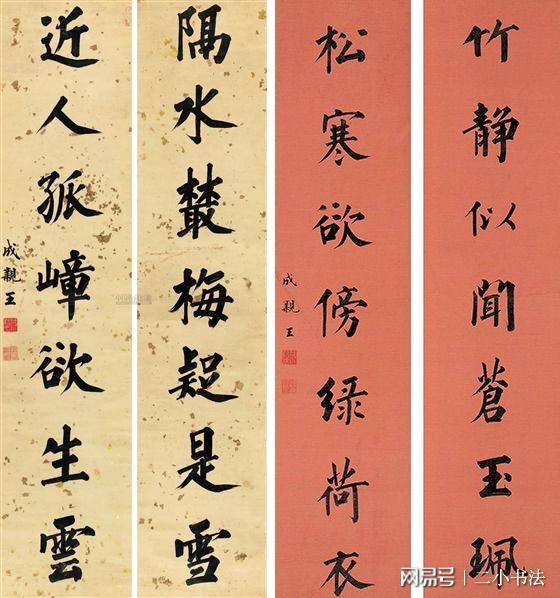 竹静似闻蒼玉珮
松寒欲傍绿荷衣
成親王
隔水叢梅疑是雪
近人孤嶂欲生雲
成親王
网易号 | 二小书法